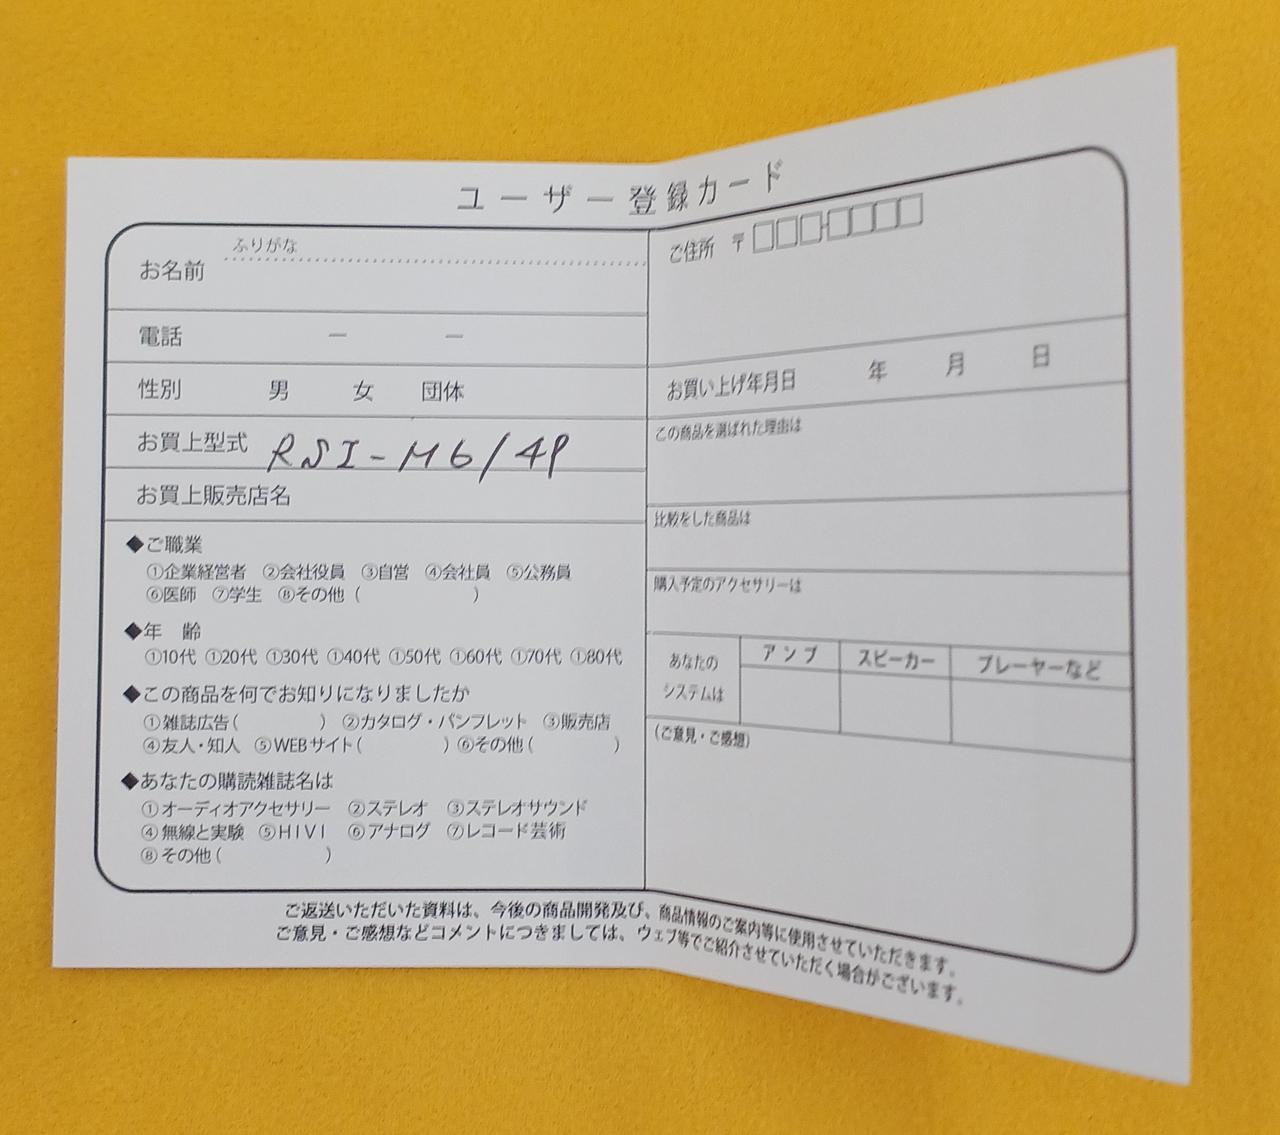 ユーザー登録カード
ふりがな
お名前
電話 ー ー
性別 男 女 団体
お買上型式 RSI-M6/4P
お買上販売店名
◆ご職業
①企業経営者 ②会社役員 ③自営 ④会社員 ⑤公務員
⑥医師 ⑦学生 ⑧その他 ( )
◆年 齢
①10代 ①20代 ①30代 ①40代 ①50代 ①60代 ①70代 ①80代
◆この商品を何でお知りになりましたか
①雑誌広告( ) ②カタログ・パンフレット ③販売店
④友人・知人 ⑤WEBサイト( ) ⑥その他( )
◆あなたの購読雑誌名は
①オーディオアクセサリー ②ステレオ ③ステレオサウンド
④無線と実験 ⑤HIVI ⑥アナログ ⑦レコード芸術
⑧その他( )
ご住所 〒□□□-□□□□
お買い上げ年月日 年 月 日
この商品を選ばれた理由は
比較をした商品は
購入予定のアクセサリーは
あなたの
システムは
アンプ スピーカー プレーヤーなど
(ご意見・ご感想)
ご返送いただいた資料は、今後の商品開発及び、商品情報のご案内等に使用させていただきます。
ご意見・ご感想などコメントにつきましては、ウェブ等でご紹介させていただく場合がございます。